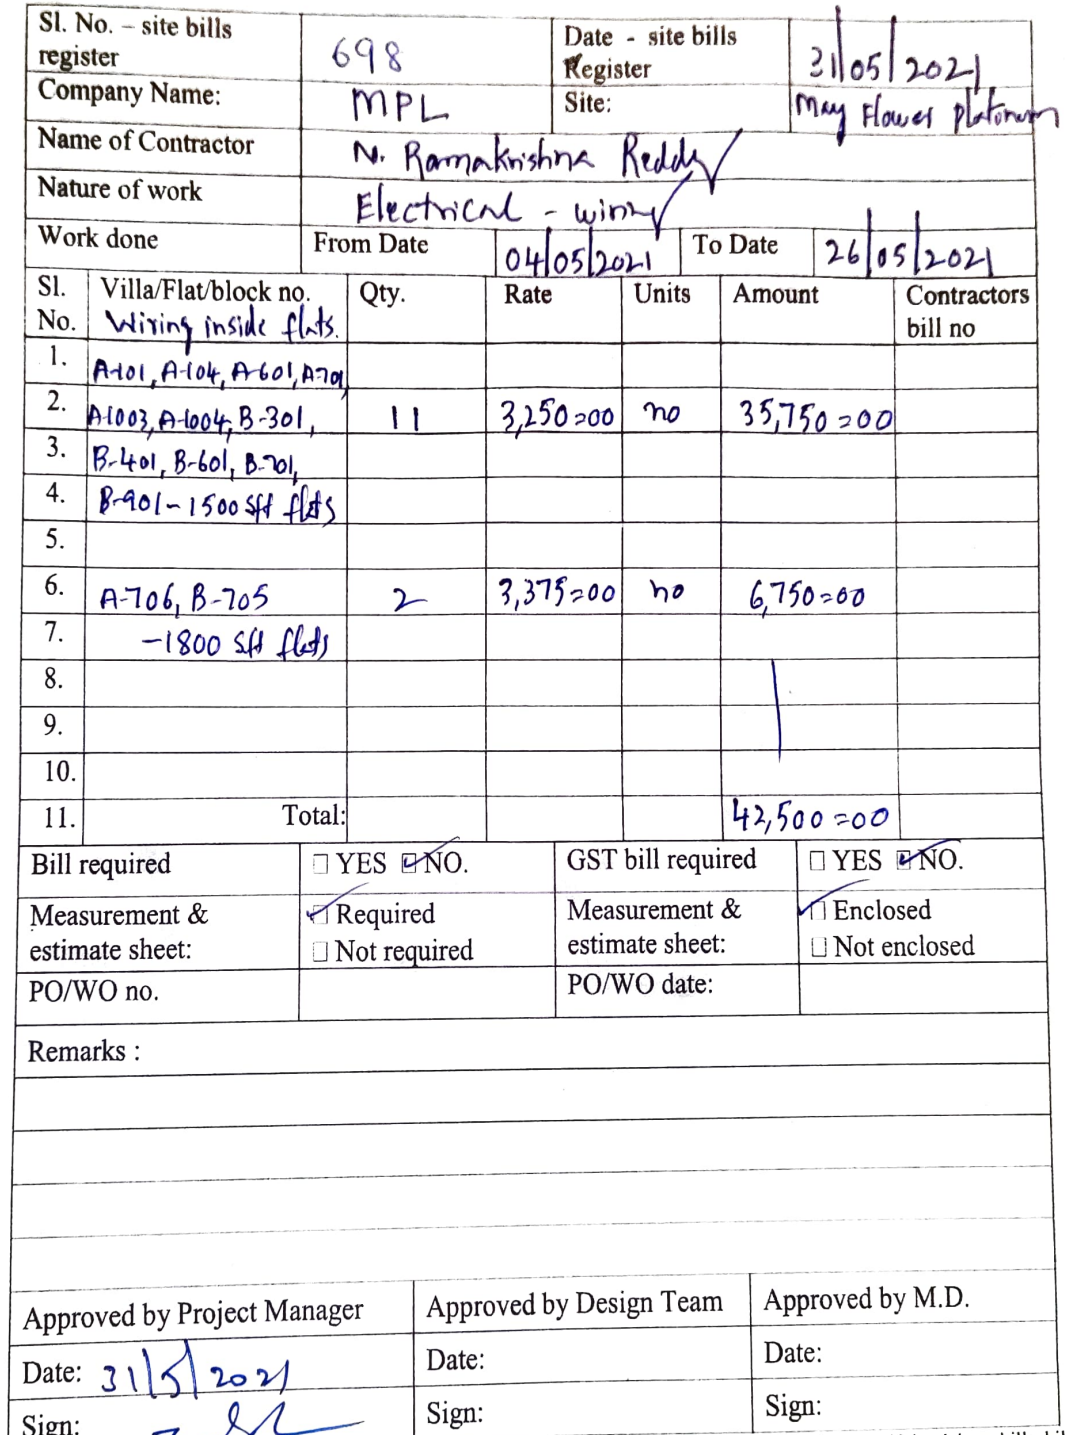 Sl. No. – site bills register 698 Date - site bills Register 31/05/2021
Company Name: MPL Site: May Flower Platinum
Name of Contractor N. Ramakrishna Reddy
Nature of work Electrical - wiring
Work done From Date 04/05/2021 To Date 26/05/2021
Sl. No. Villa/Flat/block no. Qty. Rate Units Amount Contractors bill no
Wiring inside flats.
1. A-101, A-104, A-601, A-701
2. A-1003, A-1004, B-301, 11 3,250=00 no 35,750=00
3. B-401, B-601, B-701,
4. B-901 - 1500 Sft flats
5.
6. A-706, B-705 2 3,375=00 no 6,750=00
7. -1800 Sft flats
8.
9.
10.
11. Total: 42,500=00
Bill required YES NO. GST bill required YES NO.
Measurement & estimate sheet: Required Measurement & estimate sheet: Enclosed
Not required Not enclosed
PO/WO no. PO/WO date:
Remarks :
Approved by Project Manager Approved by Design Team Approved by M.D.
Date: 31/5/2021 Date: Date:
Sign: Sign: Sign: